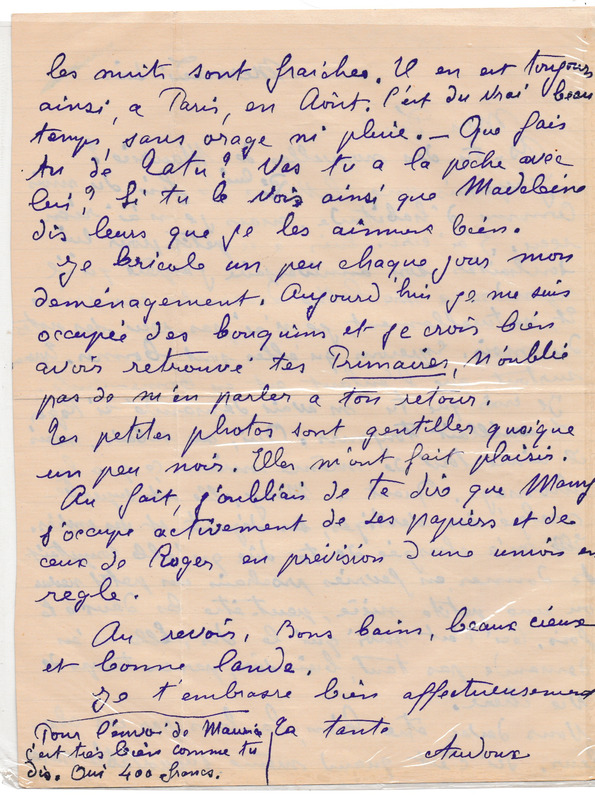 les nuits sont fraiches. Il en est toujours
ainsi, a Paris, en Août. C'est du vrai beau
temps, sans orage ni pluie. _ Que fais
tu de Latu? Vas tu a la pêche avec
lui? Si tu le vois ainsi que Madeleine
dis leurs que je les aimerai bien.
Je bricole un peu chaque jour mon
deménagement. Aujourd'hui je me suis
occupée des bouquins et je crois bien
avoir retrouvé tes Primaires, n'oublie
pas de m'en parler a ton retour.
Tes petites photos sont gentilles quoique
un peu noir. Elles m'ont fait plaisir.
Au fait, j'oubliais de te dire que
s'occupe activement de ses papiers et de
ceux de Roger en prévision d'une union en
regle.
Au revoir, Bons bains, beaux cieux
et bonne lande.
Je t'embrasse bien affectueusement
Ta tante
Audoux
Pour l'envoi de
c'est très bien comme tu
dis. Oui 400 francs.